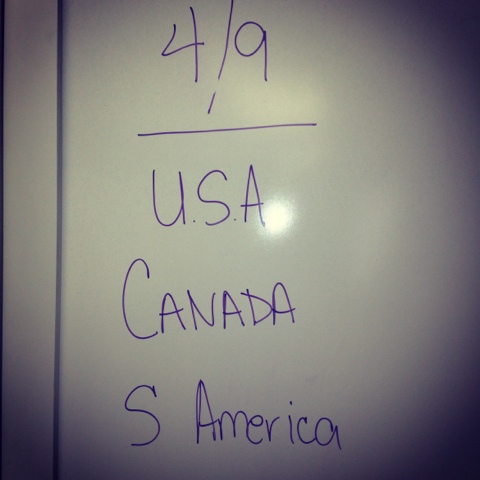 4/9
U.S.A
CANADA
S America